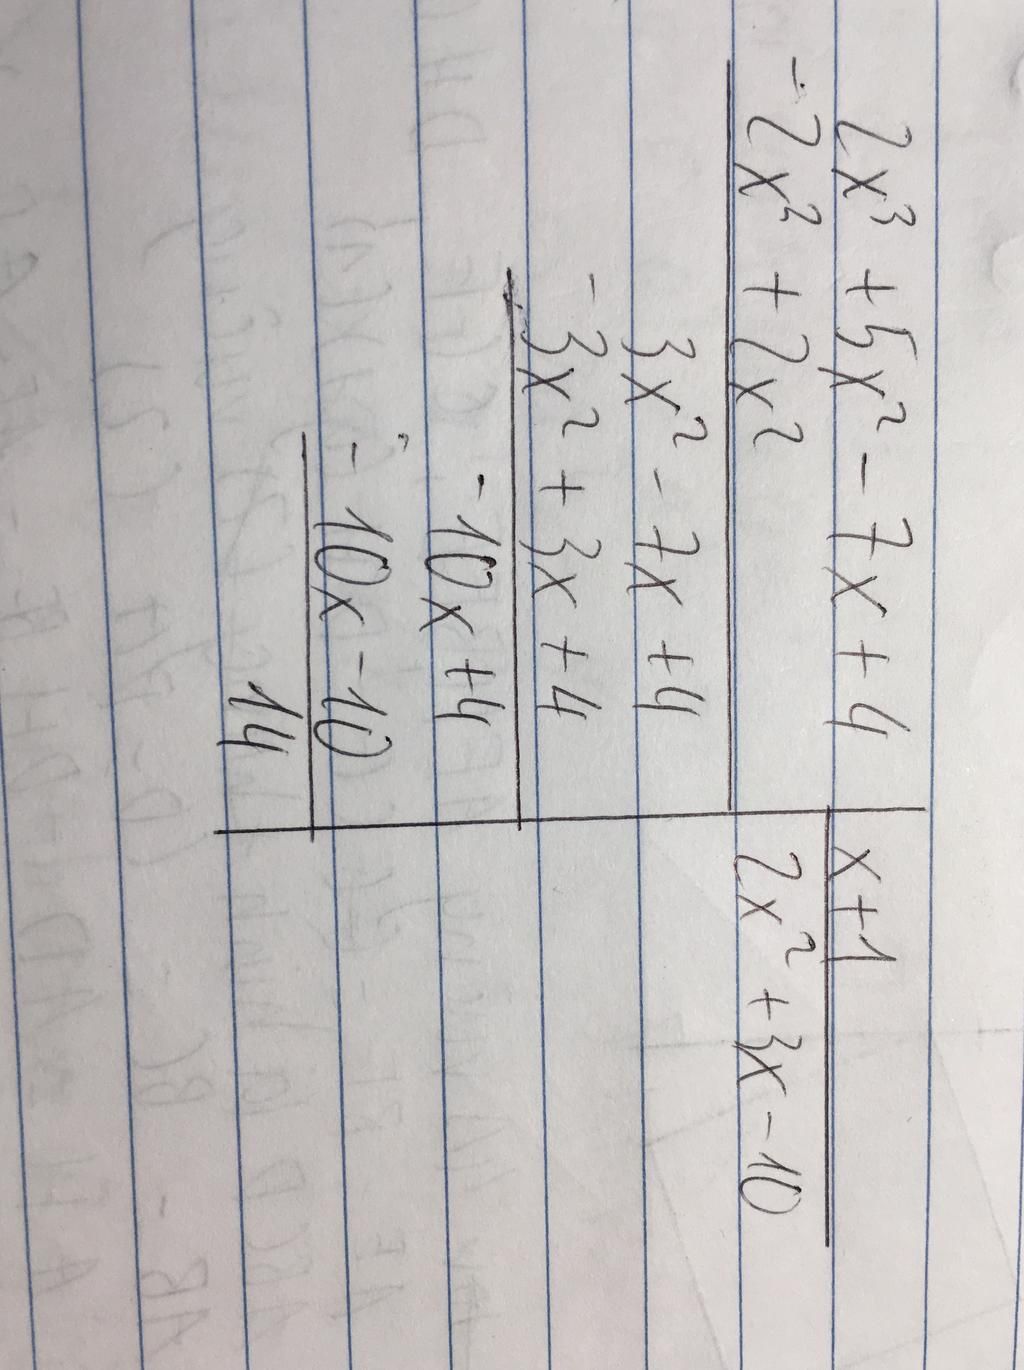 2x³ + 5x² - 7x + 4 | x+1
- 2x³ + 2x² | 2x² + 3x - 10
3x² - 7x + 4
- 3x² + 3x + 4
- 10x + 4
- - 10x - 10
14